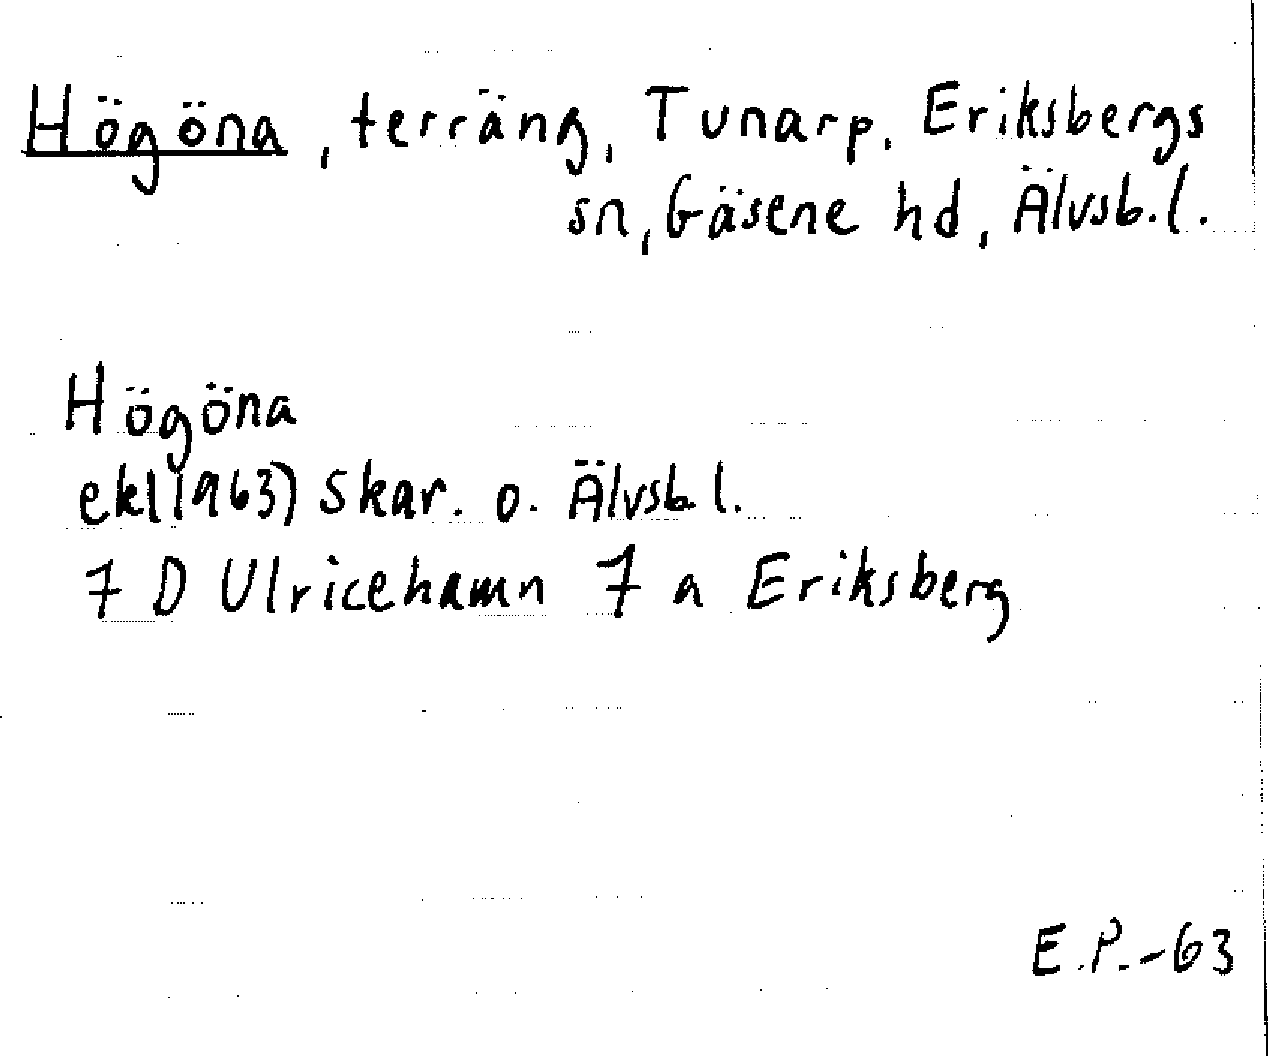 Högöna, terräng, Tunarp, Eriksbergs
sn, Gäsene hd, Älvsb.l.
Högöna
ekl(1963) Skar. o. Älvsb l.
7 D Ulricehamn 7 a Eriksberg
E.P.-63